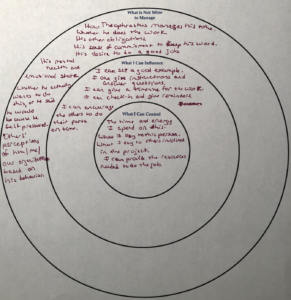 What is Not Mine
to Manage
How Theophrastus manages his time
Whether he does the work
His other obligations
His sense of commitment to keep his word.
His desire to do a good job
His mental
health and
emotional state
Whether he actually
wants to do
this, or he said
he would
because he
felt pressured
Others'
perceptions
of him/me/
our organization
based on
his behavior
What I Can Influence
I can set a good example.
I can give instructions and
answer questions.
I can give a timeline for the work
I can check-in and give reminders
I can encourage
the others to do
their parts
on time.
What I Can Control
The time and energy
I spend on this.
What I say to this person.
What I say to others involved
in the project.
I can provide the resources
needed to do the job.